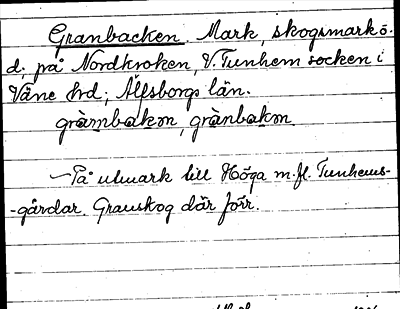 Granbacken. Mark, skogsmark ö.
d; på Nordkroken, V. Tunhem socken i
Väne hd; Älfsborgs län.
grànnbakən, grànbakən.
På utmark till Höga m.fl. Tunhems-
-gårdar. Granskog där förr.